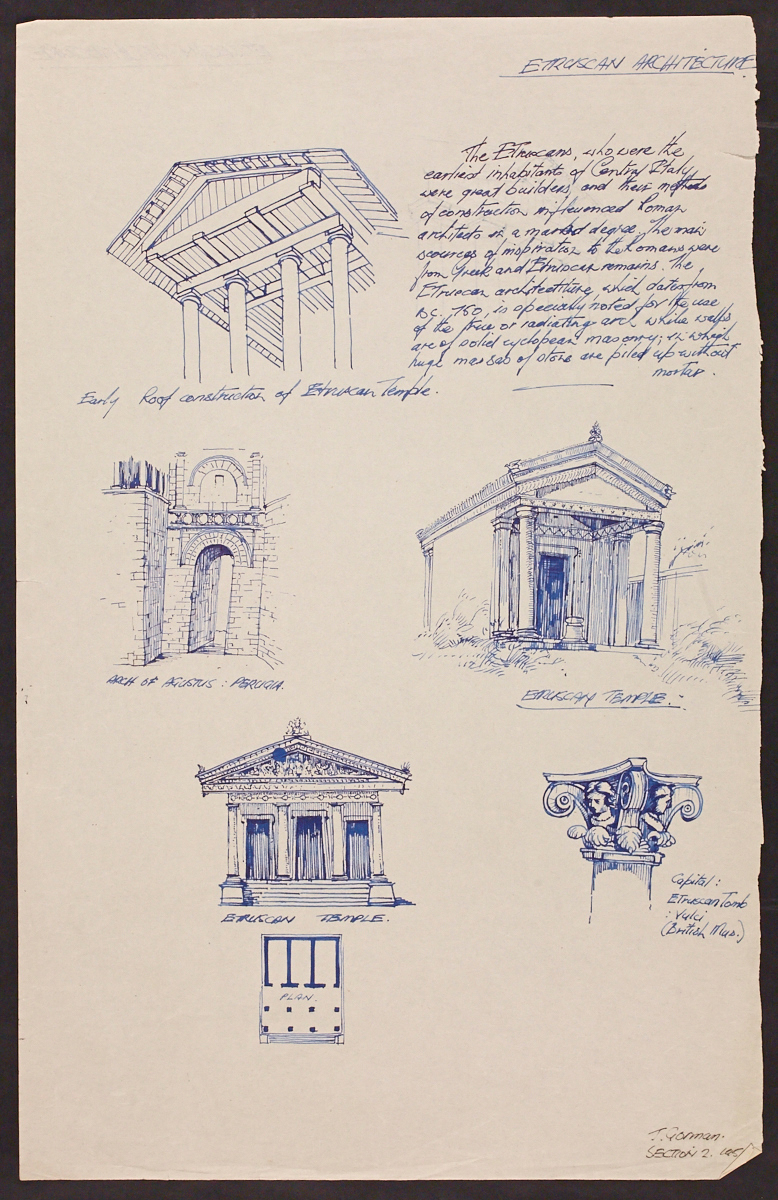 ETRUSCAN ARCHITECTURE
The Etruscans, who were the
earliest inhabitants of Central Italy
were great builders, and their methods
of construction influenced Roman
architects in a marked degree. The main
scources of inspiration to the Romans were
from Greek and Etruscan remains. The
Etruscan architectture, which dates from
B.C. 750, is specially noted for the use
of the true or radiating arch while walls
are of solid cyclopean masonry; in which
huge masses of stone are piled up without
mortar.
Early Roof construction of Etruscan Temple.
ARCH OF AGUSTUS : PERUGIA.
ETRUSCAN TEMPLE.
ETRUSCAN TEMPLE.
PLAN.
Capital:
Etruscan Tomb
: Vulci
(British Mus.)
T. Gorman.
SECTION 2.